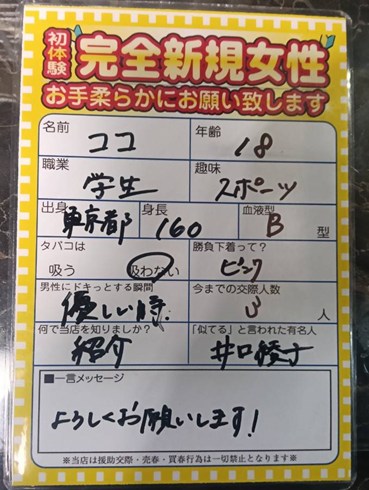 初体験
完全新規女性
お手柔らかにお願い致します
名前 ココ 年齢 18
職業 学生 趣味 スポーツ
出身 東京都 身長 160 血液型 B 型
タバコは 吸う 吸わない 勝負下着って? ピンク
男性にドキっとする瞬間 優しい時 今までの交際人数 3 人
何で当店を知りましたか? 紹介 「似てる」と言われた有名人 井口綾子
■一言メッセージ
よろしくお願いします!
※当店は援助交際・売春・買春行為は一切禁止となります※